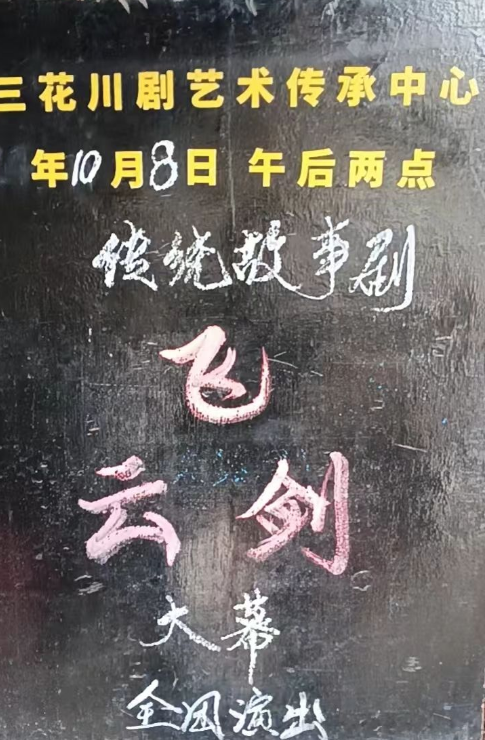 三花川剧艺术传承中心
年10月8日 午后两点
传统故事剧
飞
云剑
大幕
全团演出